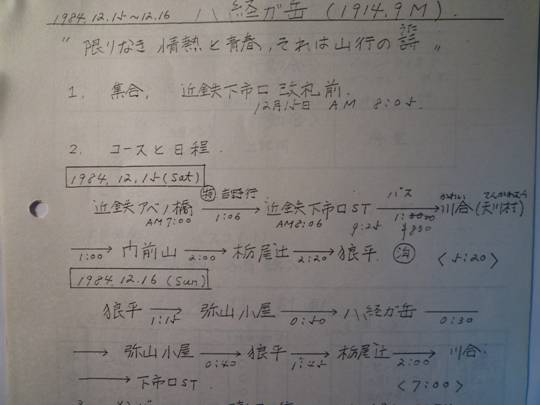 1984.12.15~12.16 八経が岳 (1914.9M).
"限りなき情熱と青春、それは山行の詩"
うた
1. 集合. 近鉄下市口 改札前.
12月15日 AM 8:05.
2. コースと日程.
1984.12.15 (Sat)
近鉄アベノ橋 特 吉野行 1:06 → 近鉄下市口ST バス → 川合 (天川村)
かわい てんかわむら
AM7:00 AM8:06 9:25 ¥850
→ 1:00 門前山 → 2:00 栃尾辻 → 2:20 狼平. 泊 <5:20>
1984.12.16 (Sun)
狼平 → 1:15 弥山小屋 → 0:50 八経が岳 0:30
→ 弥山小屋 → 0:40 狼平 → 1:45 栃尾辻 → 2:00 川合.
→ 下市口ST <7:00>